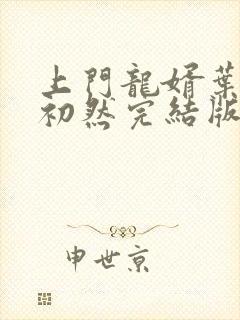 上門龍婿葉
初然完結版
申世京